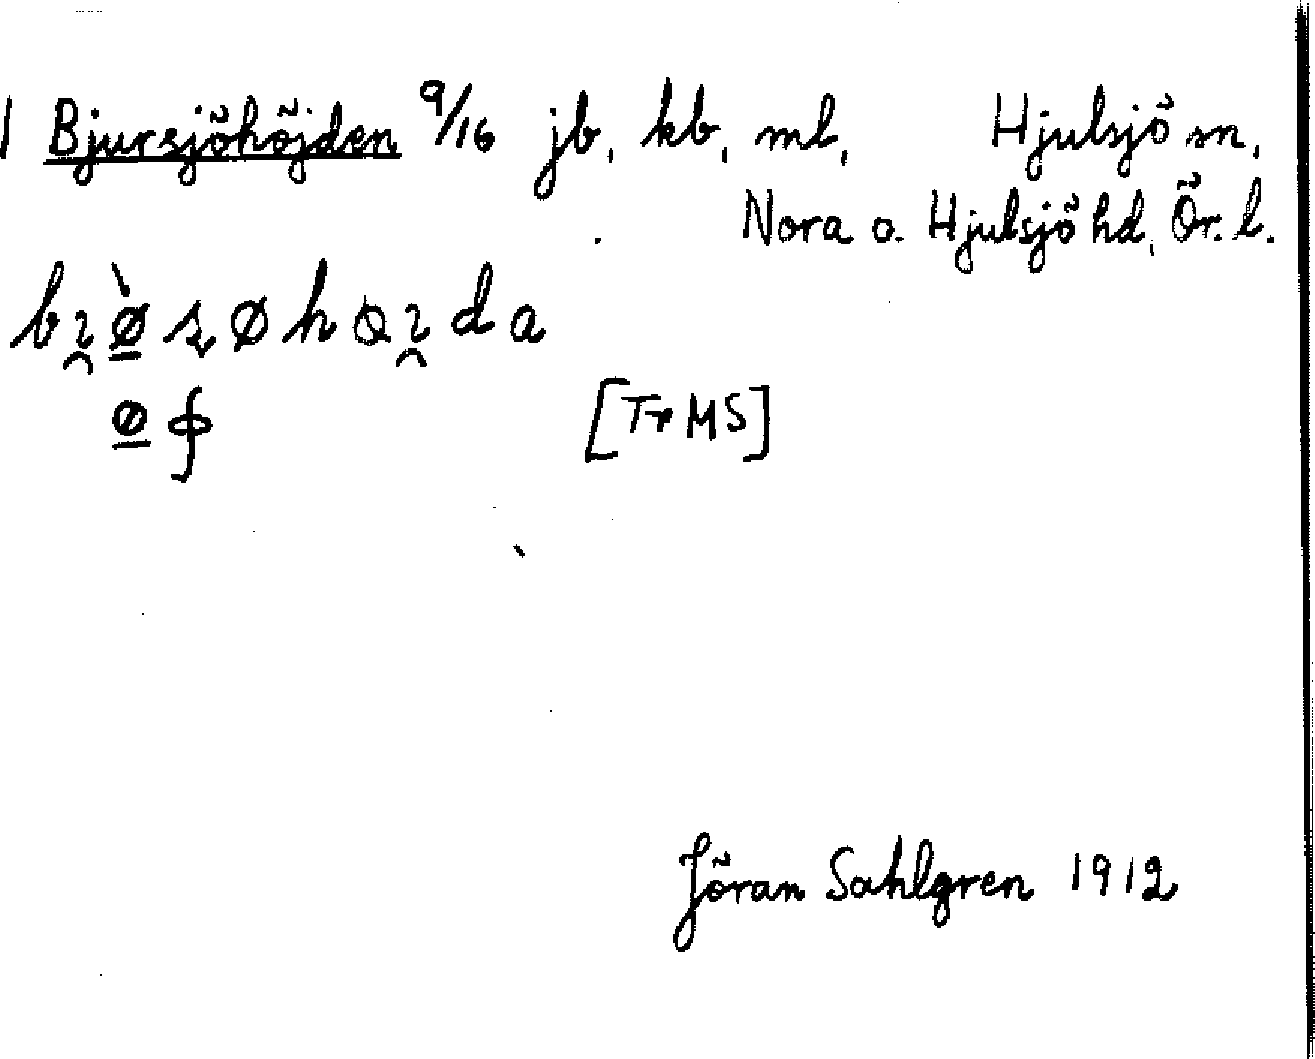 1 Bjursjöhöjden 9/16 jb, kb, ml, Hjulsjö sn,
Nora o. Hjulsjö hd, Ör. l.
[Tr MS]
Jöran Sahlgren 1912